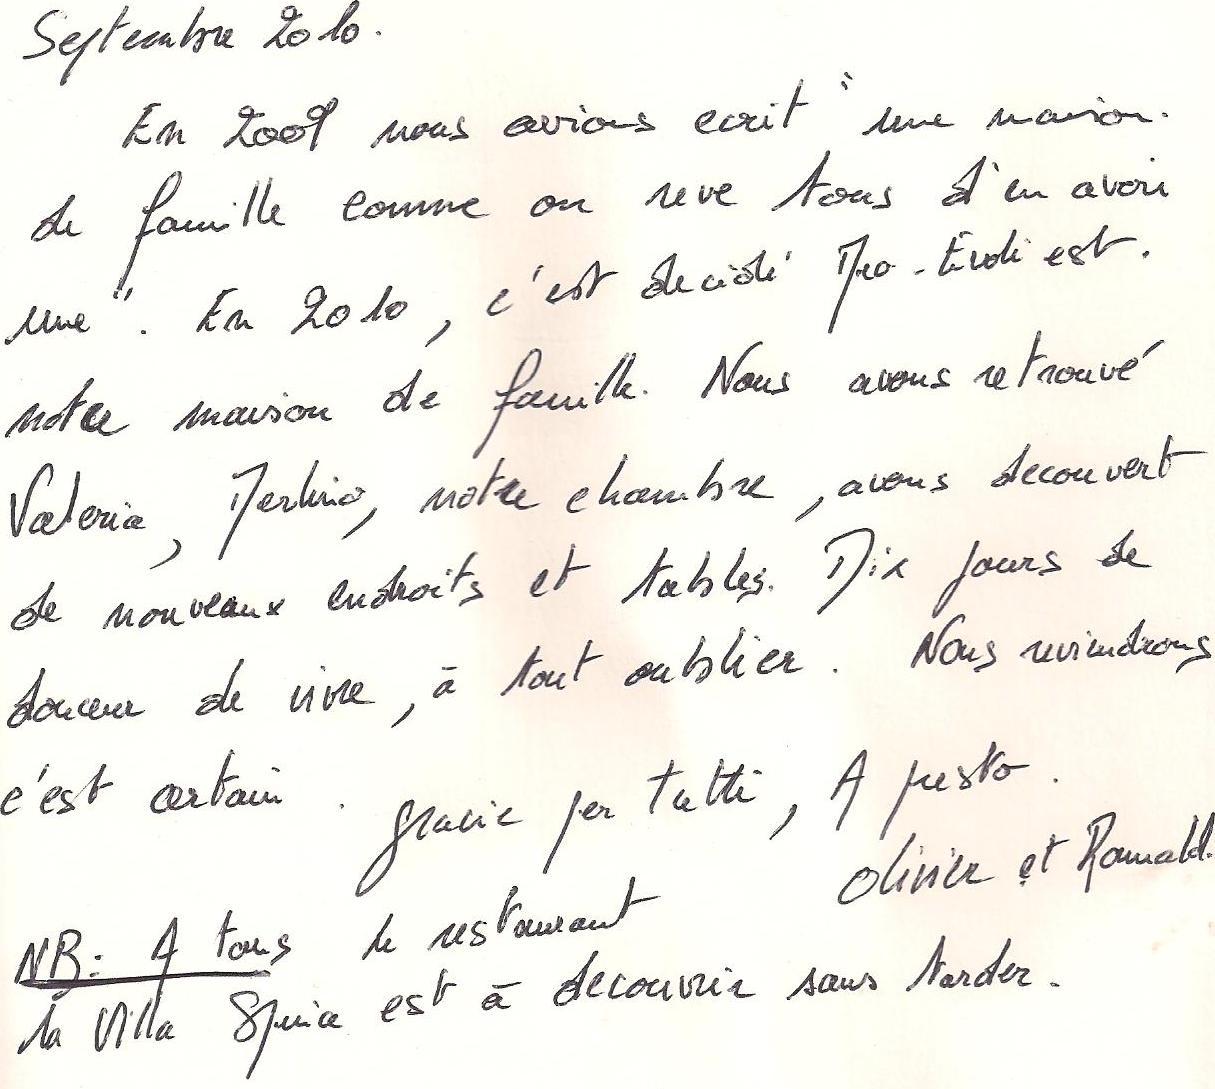 Septembre 2010.
En 2009 nous avions ecrit "une maison.
de famille comme on reve tous d'en avoir
une". En 2010, c'est decidé est.
notre maison de famille. Nous avons retrouvé
Valeria, Merlino, notre chambre, avons decouvert
de nouveaux endroits et tables. Dix jours de
douceur de vivre, à tout oublier. Nous reviendrons
c'est certain.
grazie per tutti, A presto.
Olivier et Romuald.
NB: A tous le restaurant
la Villa est à decouvrir sans tarder.